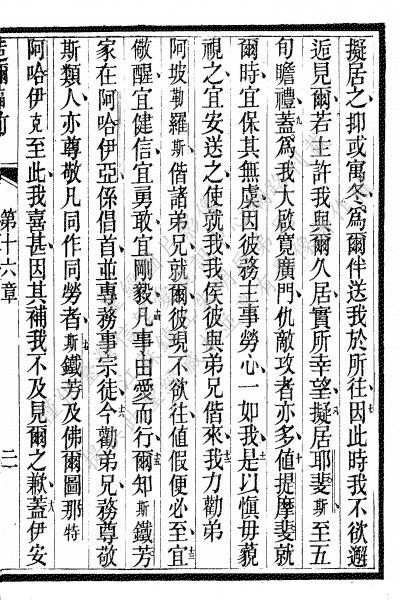 擬居之抑或寓冬為爾伴送我於所往因此時我不欲邂
逅見爾若主許我與爾久居實所幸望擬居耶斐斯至五
旬瞻禮蓋為我大啟寬廣門仇敵攻者亦多值提摩斐就
爾時宜保其無虞因彼務主事勞心一如我是以慎毋藐
視之宜安送之使就我我俟彼與弟兄偕來我力勸弟
阿坡勒羅斯偕諸弟兄就爾彼現不欲往值假便必至宜
儆醒宜健信宜勇敢宜剛毅凡事由愛而行爾知斯鐵芳
家在阿哈伊亞係倡首並專務事宗徒今勸弟兄務尊敬
斯類人亦尊敬凡同作同勞者斯鐵芳及佛爾圖那特
阿哈伊克至此我喜甚因其補我不及見爾之歉蓋伊安
第十六章
二